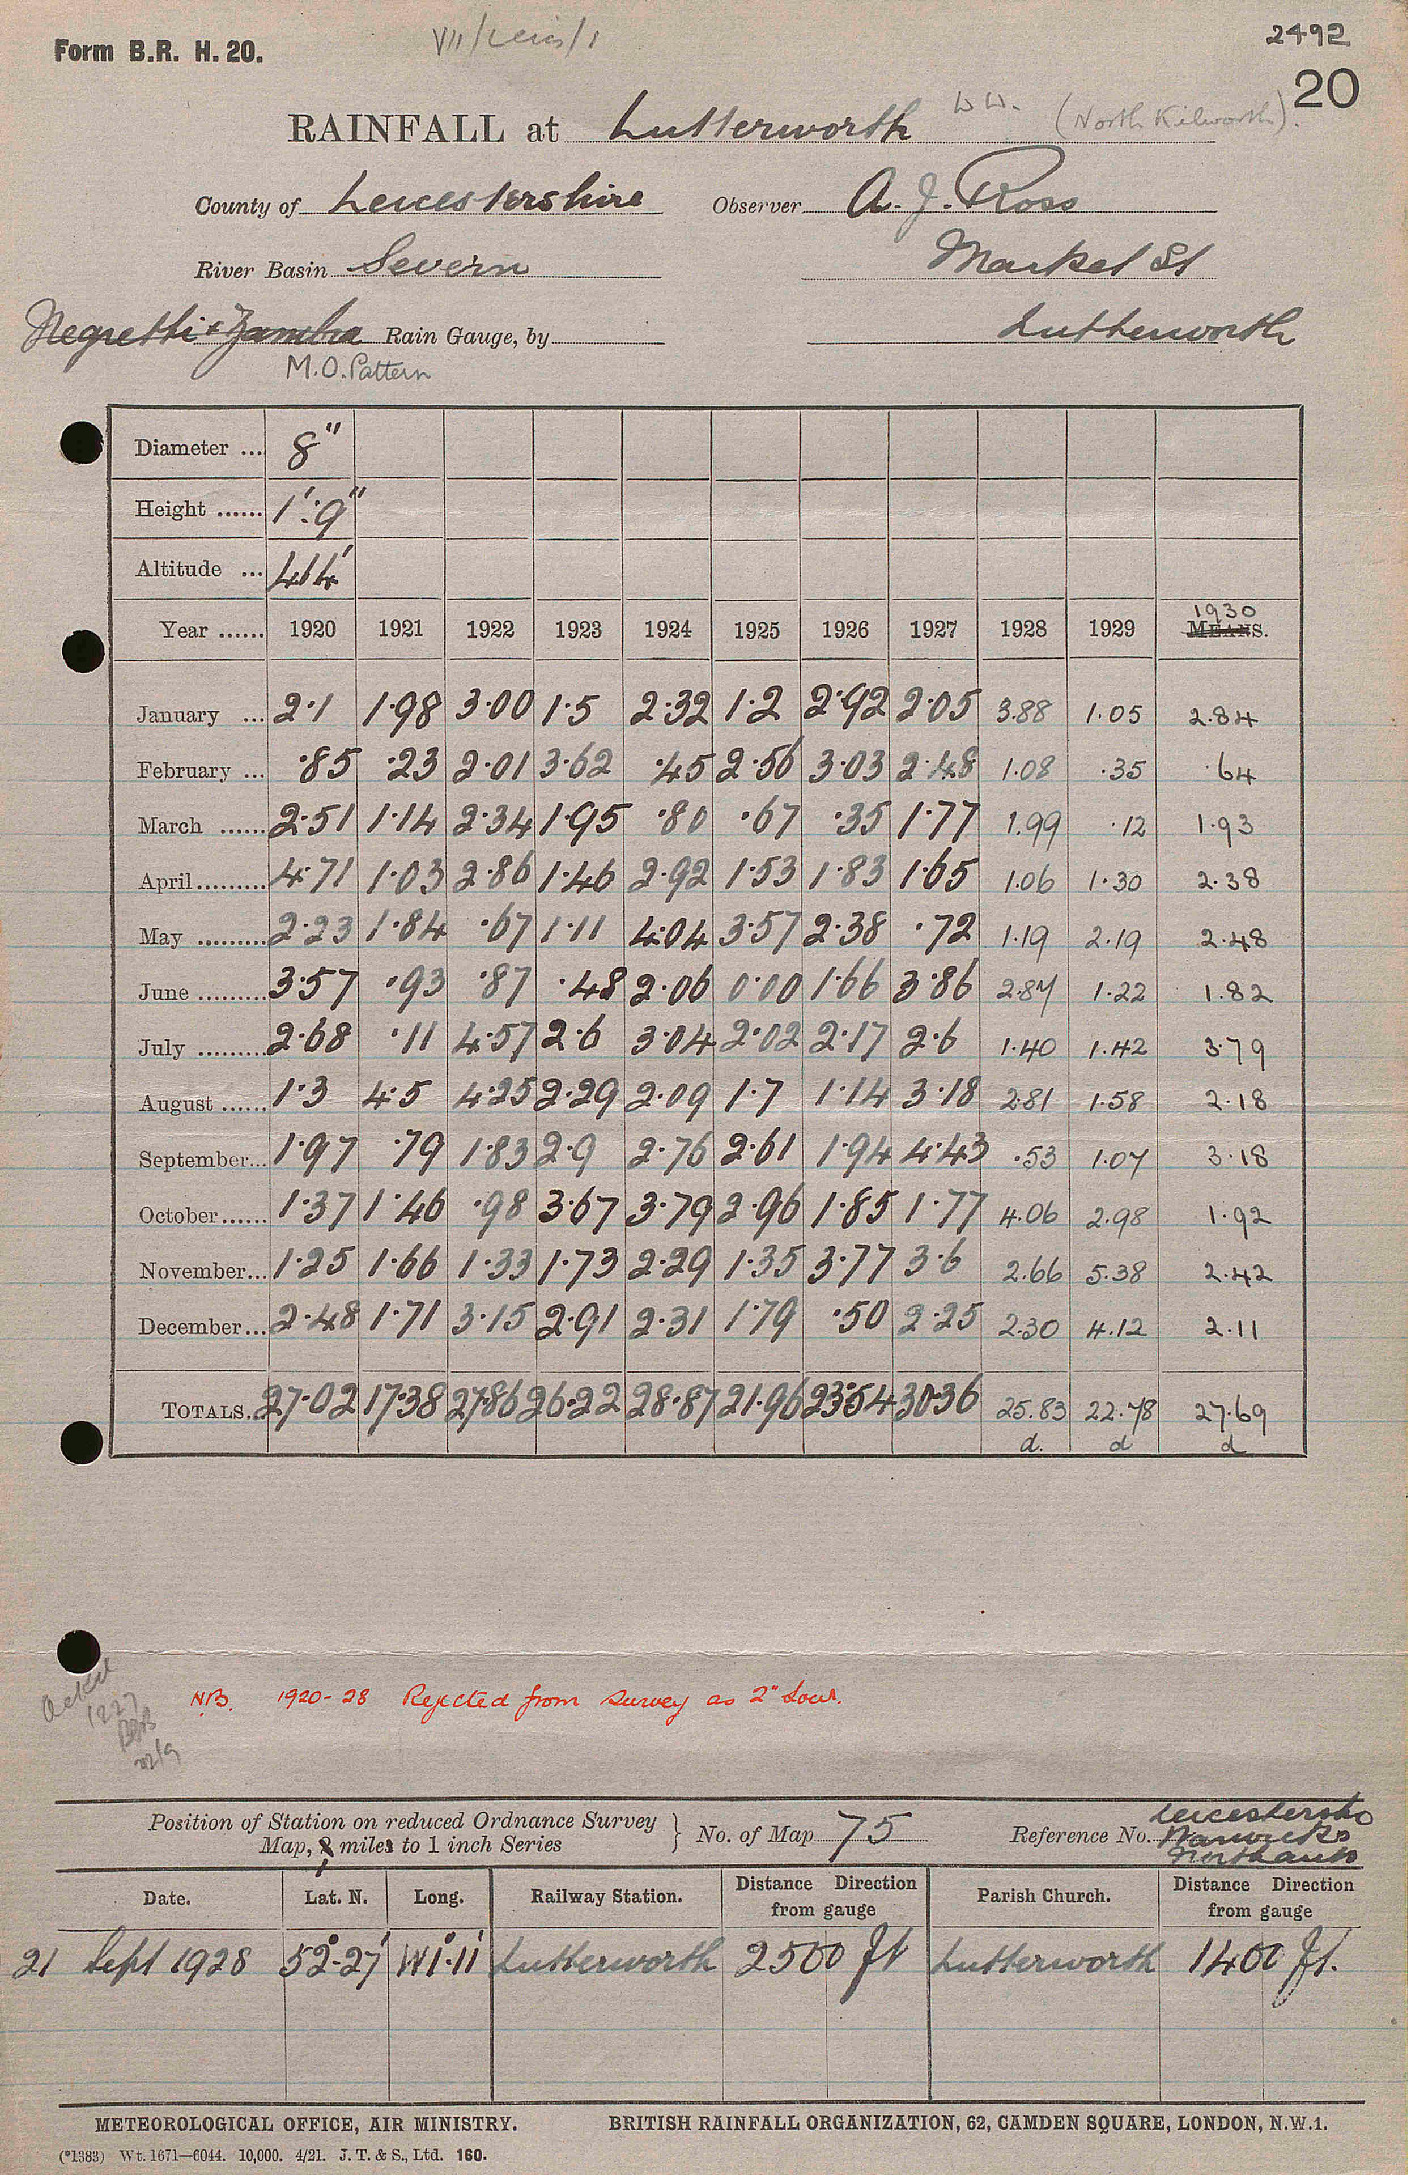 Form B.R. H. 20.
VII/Leics/1
2492
20
RAINFALL at Lutterworth W.W. (North Kilworth).
County of Leicestershire Observer A. J. Ross
River Basin Severn Market St
Negretti & Zambra Rain Gauge, by Lutterworth
M.O. Pattern
Diameter ... 8"
Height ...... 1':9"
Altitude ... 414'
Year ...... 1920 1921 1922 1923 1924 1925 1926 1927 1928 1929 1930 MEANS.
January ... 2·1 1·98 3·00 1·5 2·32 1·2 2·92 2·05 3.88 1.05 2.84
February ... ·85 ·23 2·01 3·62 ·45 2·56 3·03 2·48 1.08 .35 .64
March ...... 2·51 1·14 2·34 1·95 ·80 ·67 ·35 1·77 1.99 .12 1.93
April ......... 4·71 1·03 2·86 1·46 2·92 1·53 1·83 1·65 1.06 1.30 2.38
May ......... 2·23 1·84 ·67 1·11 4·04 3·57 2·38 ·72 1.19 2.19 2.48
June ......... 3·57 ·93 ·87 ·48 2·06 0·00 1·66 3·86 2.87 1.22 1.82
July ......... 2·68 ·11 4·57 2·6 3·04 2·02 2·17 2·6 1.40 1.42 3.79
August ...... 1·3 4·5 4·25 2·29 2·09 1·7 1·14 3·18 2.81 1.58 2.18
September... 1·97 ·79 1·83 2·9 2·76 2·61 1·94 4·43 .53 1.07 3.18
October...... 1·37 1·46 ·98 3·67 3·79 2·96 1·85 1·77 4.06 2.98 1.92
November... 1·25 1·66 1·33 1·73 2·29 1·35 3·77 3·6 2.66 5.38 2.42
December... 2·48 1·71 3·15 2·91 2·31 1·79 ·50 2·25 2.30 4.12 2.11
TOTALS. 27·02 17·38 27·86 26·22 28·87 21·96 23·54 30·36 25.83 22.78 27.69
d. d d
N.B. 1920-28 Rejected from survey as 2" low.
Position of Station on reduced Ordnance Survey
Map, 2 miles to 1 inch Series
No. of Map 75 Reference No. Leicestersh
Warwicks
Northants
Date. Lat. N. Long. Railway Station. Distance Direction from gauge Parish Church. Distance Direction from gauge
21 Sept 1928 52°-27' W1°·11' Lutterworth 2500 ft Lutterworth 1400 ft.
METEOROLOGICAL OFFICE, AIR MINISTRY. BRITISH RAINFALL ORGANIZATION, 62, CAMDEN SQUARE, LONDON, N.W.1.
(*1383) Wt. 1671—6044. 10,000. 4/21. J. T. & S., Ltd. 160.